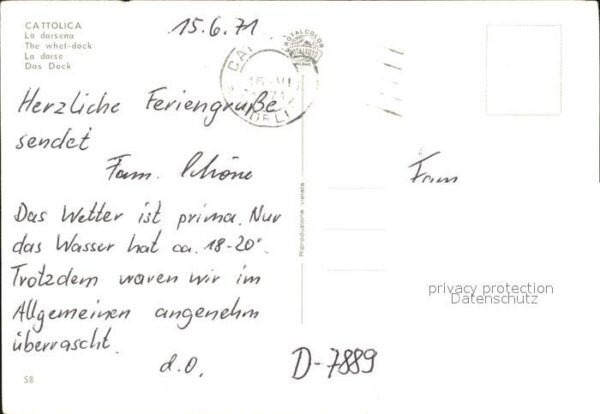 CATTOLICA
La darsena
The whet-dock
La darse
Das Dock
15.6.71
ROTALCOLOR
ROTALFOTO
Herzliche Feriengrüße
sendet
Fam. Schöne
Fam
Das Wetter ist prima. Nur
das Wasser hat ca. 18-20°.
Trotzdem waren wir im
Allgemeinen angenehm
überrascht.
d.O.
D-7889
Riproduzione vietata
privacy protection
Datenschutz
58